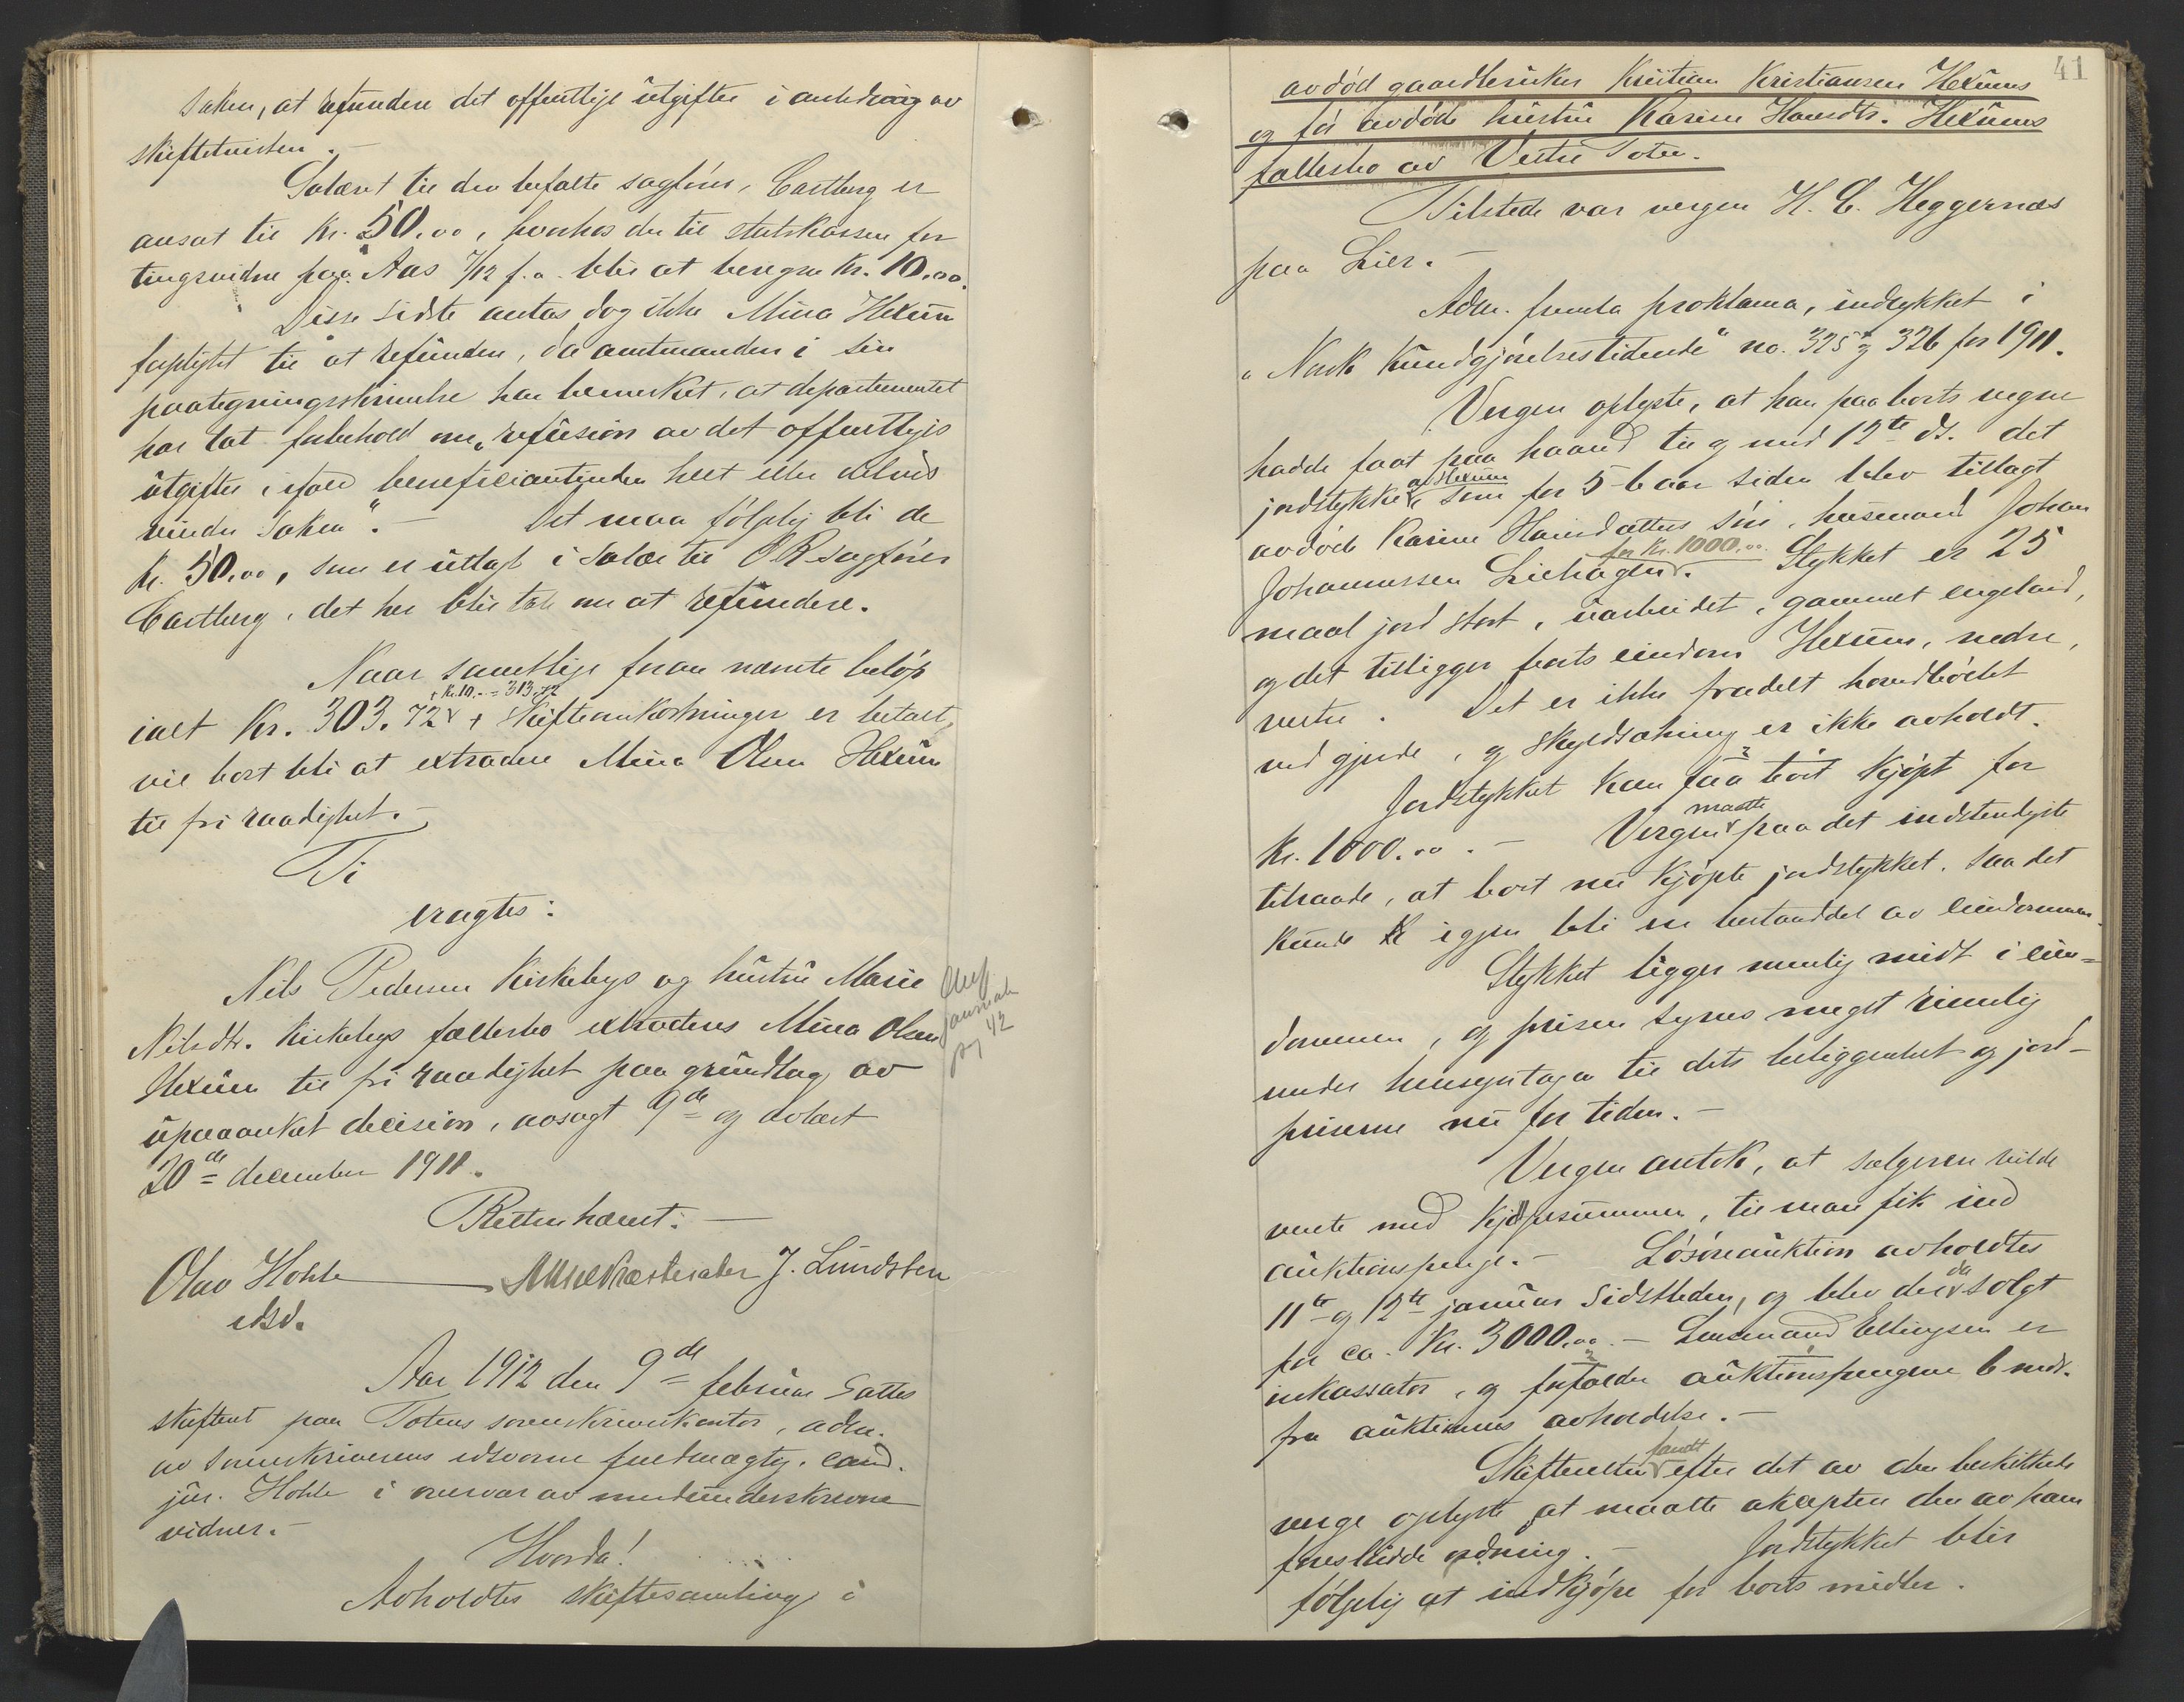 saken, at refundere det offentlige utgifter i anledning av
skiftetvisten.-
Salæret til den befalte sagfører, Castberg er
ansat til Kr. 50.00, hvorhos der til statskassen for
tingsvidne paa Aas 7/12 f.a. blir at beregne Kr. 10.00.
Disse sidste antas dog ikke Mina Hexum
forpligtet til at refundere, da amtmanden i sin
paategningsskrivelse har bemerket, at departementet
har tat forbehold om "refusion av det offentliges
utgifter, ifald beneficiantinden helt eller delvis
vinder saken".- Det maa følgelig bli de
kr. 50.00, som er utlagt i salær til O.R.sagfører
Castberg, det her blir tale om at refundere.
Naar samtlige foran nævnte beløp
+ Kr. 10.- = 313.72
ialt Kr. 303.72 + skifteomkostninger er betalt,
vil boet bli at extradere Mina Olsen Hexum
til fri raadighet.-
Ti
eragtes:
Nils Pedersen Kirkebys og hustru Marie
Nilsdtr. Kirkebys fællesbo extraderes Mina Olsen
Hexum til fri raadighet paa grundlag av
upaaanket decision, avsagt 9de og avlæst
20de december 1911.
journal
42
Retten hævet:-
Olav Hohle J. Lundsten
edsv.
Aar 1912 den 9de februar sattes
skifteret paa Totens sorenskriverkontor, adm.
av sorenskriverens edsvorne fuldmægtig, cand.
jur. Hohle i overvær av medunderskrevne
vidner.-
Hvorda!
Avholdtes skiftesamling i
41
avdød gaardbruker Kristian Kristiansen Hexums
og før avdøde hustru Karine Hansdtr. Hexums
fællesbo av Vestre Toten.
Tilstede var vergen H. C. Heggernæs
paa Lier.-
Adm. fremla proklama, indrykket i
"Norsk Kundgjørelsestidende" no. 325 og 326 for 1911.
Vergen oplyste, at han paa boets vegne
hadde faat paa haand til og med 12te ds. det
av Hexum
jordstykke, som for 5-6 aar siden blev tillagt
avdøde Karine Hansdatters søn, husmand Johan
for Kr. 1000.00.
Johannessen Liehagen. Stykket er 25
maal jord stort, uarbeidet, gammel engeland,
og det tilligger boets eiendom Hexum, nedre,
vestre. Det er ikke fradelt hovedbølet
ved gjerde, og skyldsætning er ikke avholdt.
Jordstykket kan faa boet kjøpt for
maatte
Kr. 1000.00.- Vergen paa det indstendigste
tilraade, at boet nu kjøpte jordstykket, saa det
kunde igjen bli en bestanddel av eiendommen.
Stykket ligger nemlig midt i eien=
dommen, og prisen synes meget rimelig
under hensyntagen til dets beliggenhet og jord-
priserne nu for tiden.-
Vergen antok, at sælgeren vilde
vente med kjøpesummen, til man fik ind
auktionspenge.- Løsøreauktion avholdtes
da
11te og 12te januar sidstleden, og blev der solgt
for ca. Kr. 3000.00.- Lensmand Ellingsen er
inkassator, og forfalder auktionspengene 6 mdr.
fra auktionens avholdelse.-
fandt
Skifteretten efter det av den beskikkede
verge oplyste at maatte akceptere den av ham
foreslaaede ordning.- Jordstykket blir
følgelig at indkjøpe for boets midler.